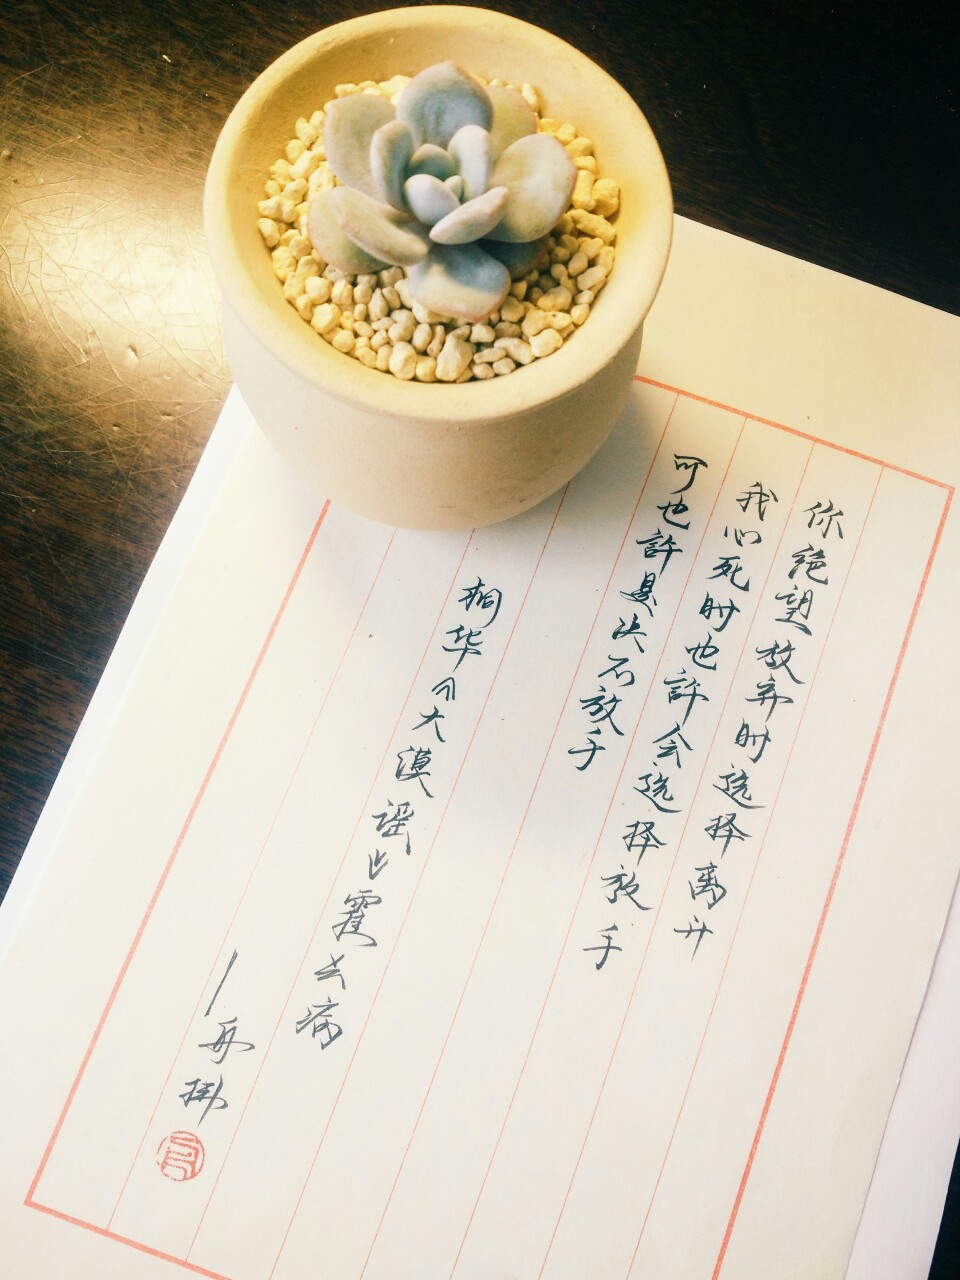 你绝望放弃时选择离开
我心死时也許会选择放手
可也許是决不放手
桐华《大漠谣》霍去病
—再拂